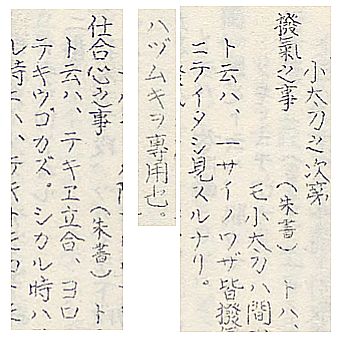 小太刀之次第
撥氣之事 (朱書) トハ、
モ小太刀ハ間
ト云ハ、一サイノワザ皆撥
ニテイタシ見スルナリ。
ハヅムキヲ専用也。
仕合心之事 (朱書) ト
ト云ハ、テキヱ立合、ヨロ
テキウゴカズ。シカル時ハ
ル時ニハ、テキ